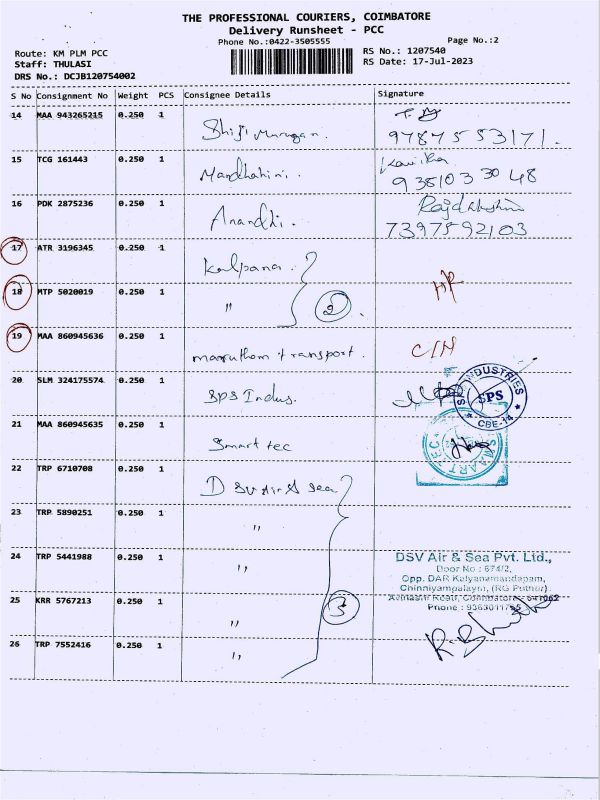 THE PROFESSIONAL COURIERS, COIMBATORE
Delivery Runsheet - PCC
Phone No.:0422-3505555 Page No.:2
Route: KM PLM PCC RS No.: 1207540
Staff: THULASI RS Date: 17-Jul-2023
DRS No.: DCJB120754002
S No Consignment No Weight PCS Consignee Details Signature
14 MAA 943265215 0.250 1 Shiji Murugan. 9787553171.
15 TCG 161443 0.250 1 Kavitha
9361033048
16 PDK 2875236 0.250 1 Anandhi. Rajalakshmi
7397592103
17 ATR 3196345 0.250 1 Kalpana.
18 MTP 5020019 0.250 1 " 2
19 MAA 860945636 0.250 1 marutham transport.
20 SLM 324175574 0.250 1 SPS Indus. INDUSTRIES SPS CBE-14
21 MAA 860945635 0.250 1 Smart tec SMAART TEC
22 TRP 6710708 0.250 1 DSV Air & Sea
23 TRP 5890251 0.250 1 "
24 TRP 5441988 0.250 1 "
DSV Air & Sea Pvt. Ltd.,
Door No : 674/2,
Opp. DAR Kalyanamandapam,
Chinniyampalayam, (RG Puthur)
Avinashi Road, Coimbatore - 641062
Phone : 9363011795
25 KRR 5767213 0.250 1 " 3
26 TRP 7552416 0.250 1 "